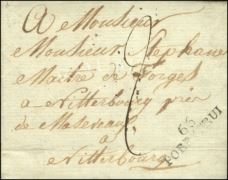 A Monsieur
Monsieur Stephane
Maitre de Forges
a Vitterbourg près
de Masevaux
à
Vitterbourg
66
PORENTRUI